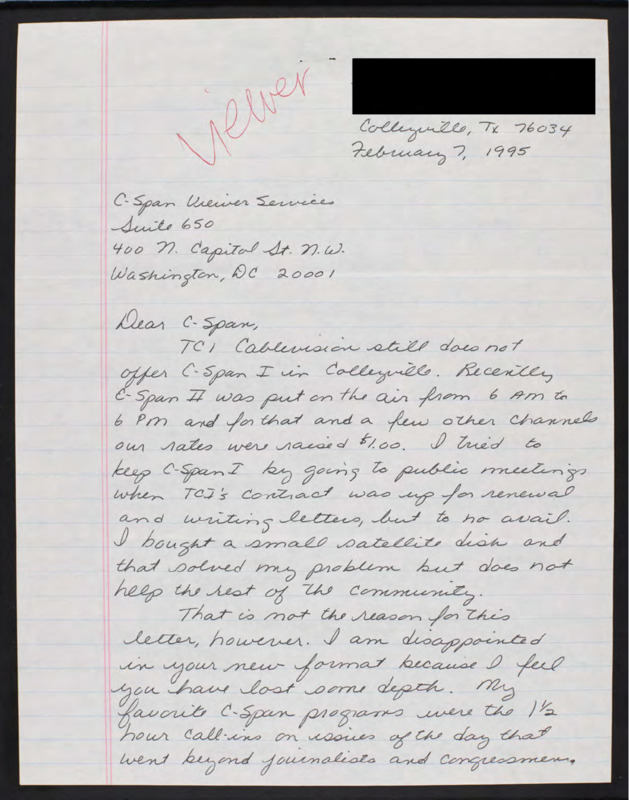 Viewer
Colleyville, Tx 76034
February 7, 1995
C-Span Viewer Services
Suite 650
400 N. Capitol St. N.W.
Washington, DC 20001
Dear C-Span,
TCI Cablevision still does not
offer C-Span I in Colleyville. Recently
C-Span II was put on the air from 6 AM to
6 PM and for that and a few other channels
our rates were raised $1.00. I tried to
keep C-Span I by going to public meetings
when TCI's contract was up for renewal
and writing letters, but to no avail.
I bought a small satellite dish and
that solved my problem but does not
help the rest of the community.
That is not the reason for this
letter, however. I am disappointed
in your new format because I feel
you have lost some depth. My
favorite C-Span programs were the 1½
hour call-ins on issues of the day that
went beyond journalists and congressmen.